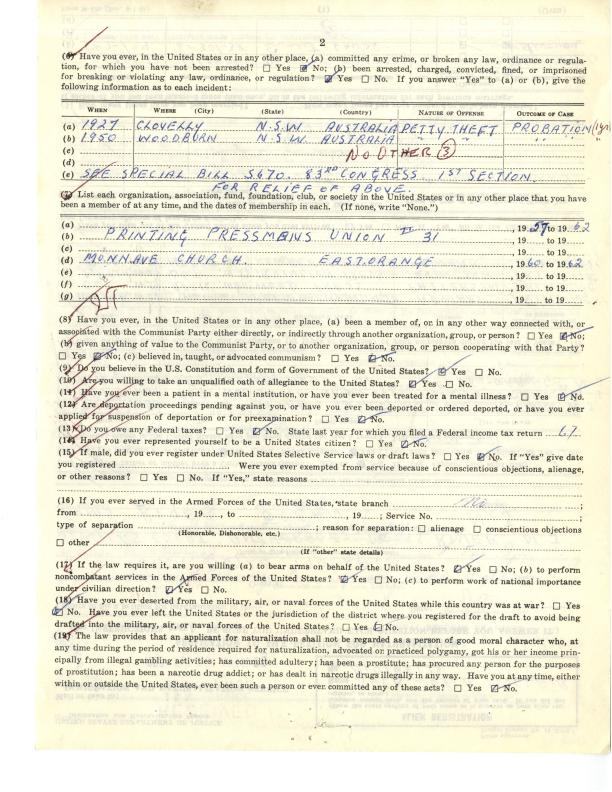 2
(6) Have you ever, in the United States or in any other place, (a) committed any crime, or broken any law, ordinance or regula-
tion, for which you have not been arrested? ☐ Yes ☑ No; (b) been arrested, charged, convicted, fined, or imprisoned
for breaking or violating any law, ordinance, or regulation? ☑ Yes ☐ No. If you answer "Yes" to (a) or (b), give the
following information as to each incident:
WHEN WHERE (City) (State) (Country) NATURE OF OFFENSE OUTCOME OF CASE
(a) 1927 CLOVELLY N.S.W. AUSTRALIA PETTY THEFT PROBATION
(b) 1950 WOODBURN N.S.W. AUSTRALIA " " "
(c) NO OTHER (3)
(d)
(e) SEE SPECIAL BILL S.670. 83RD CONGRESS. 1ST SECTION.
FOR RELIEF OF ABOVE.
(7) List each organization, association, fund, foundation, club, or society in the United States or in any other place that you have
been a member of at any time, and the dates of membership in each. (If none, write "None.")
(a) , 1957 to 1962
(b) PRINTING PRESSMENS UNION 31 , 19 to 19
(c) , 19 to 19
(d) MUNNAVE CHURCH EAST.ORANGE , 1960 to 1962
(e) , 19 to 19
(f) , 19 to 19
(g) , 19 to 19
(8) Have you ever, in the United States or in any other place, (a) been a member of, or in any other way connected with, or
associated with the Communist Party either directly, or indirectly through another organization, group, or person? ☐ Yes ☑ No;
(b) given anything of value to the Communist Party, or to another organization, group, or person cooperating with that Party?
☐ Yes ☑ No; (c) believed in, taught, or advocated communism? ☐ Yes ☑ No.
(9) Do you believe in the U.S. Constitution and form of Government of the United States? ☑ Yes ☐ No.
(10) Are you willing to take an unqualified oath of allegiance to the United States? ☑ Yes ☐ No.
(11) Have you ever been a patient in a mental institution, or have you ever been treated for a mental illness? ☐ Yes ☑ No.
(12) Are deportation proceedings pending against you, or have you ever been deported or ordered deported, or have you ever
applied for suspension of deportation or for preexamination? ☐ Yes ☑ No.
(13) Do you owe any Federal taxes? ☐ Yes ☑ No. State last year for which you filed a Federal income tax return 67
(14) Have you ever represented yourself to be a United States citizen? ☐ Yes ☑ No.
(15) If male, did you ever register under United States Selective Service laws or draft laws? ☐ Yes ☑ No. If "Yes" give date
you registered Were you ever exempted from service because of conscientious objections, alienage,
or other reasons? ☐ Yes ☐ No. If "Yes," state reasons
(16) If you ever served in the Armed Forces of the United States, state branch No ;
from , 19 , to , 19 ; Service No. ;
type of separation ; reason for separation: ☐ alienage ☐ conscientious objections
(Honorable, Dishonorable, etc.)
☐ other
(If "other" state details)
(17) If the law requires it, are you willing (a) to bear arms on behalf of the United States? ☑ Yes ☐ No; (b) to perform
noncombatant services in the Armed Forces of the United States? ☑ Yes ☐ No; (c) to perform work of national importance
under civilian direction? ☑ Yes ☐ No.
(18) Have you ever deserted from the military, air, or naval forces of the United States while this country was at war? ☐ Yes
☑ No. Have you ever left the United States or the jurisdiction of the district where you registered for the draft to avoid being
drafted into the military, air, or naval forces of the United States? ☐ Yes ☑ No.
(19) The law provides that an applicant for naturalization shall not be regarded as a person of good moral character who, at
any time during the period of residence required for naturalization, advocated or practiced polygamy, got his or her income prin-
cipally from illegal gambling activities; has committed adultery; has been a prostitute; has procured any person for the purposes
of prostitution; has been a narcotic drug addict; or has dealt in narcotic drugs illegally in any way. Have you at any time, either
within or outside the United States, ever been such a person or ever committed any of these acts? ☐ Yes ☑ No.